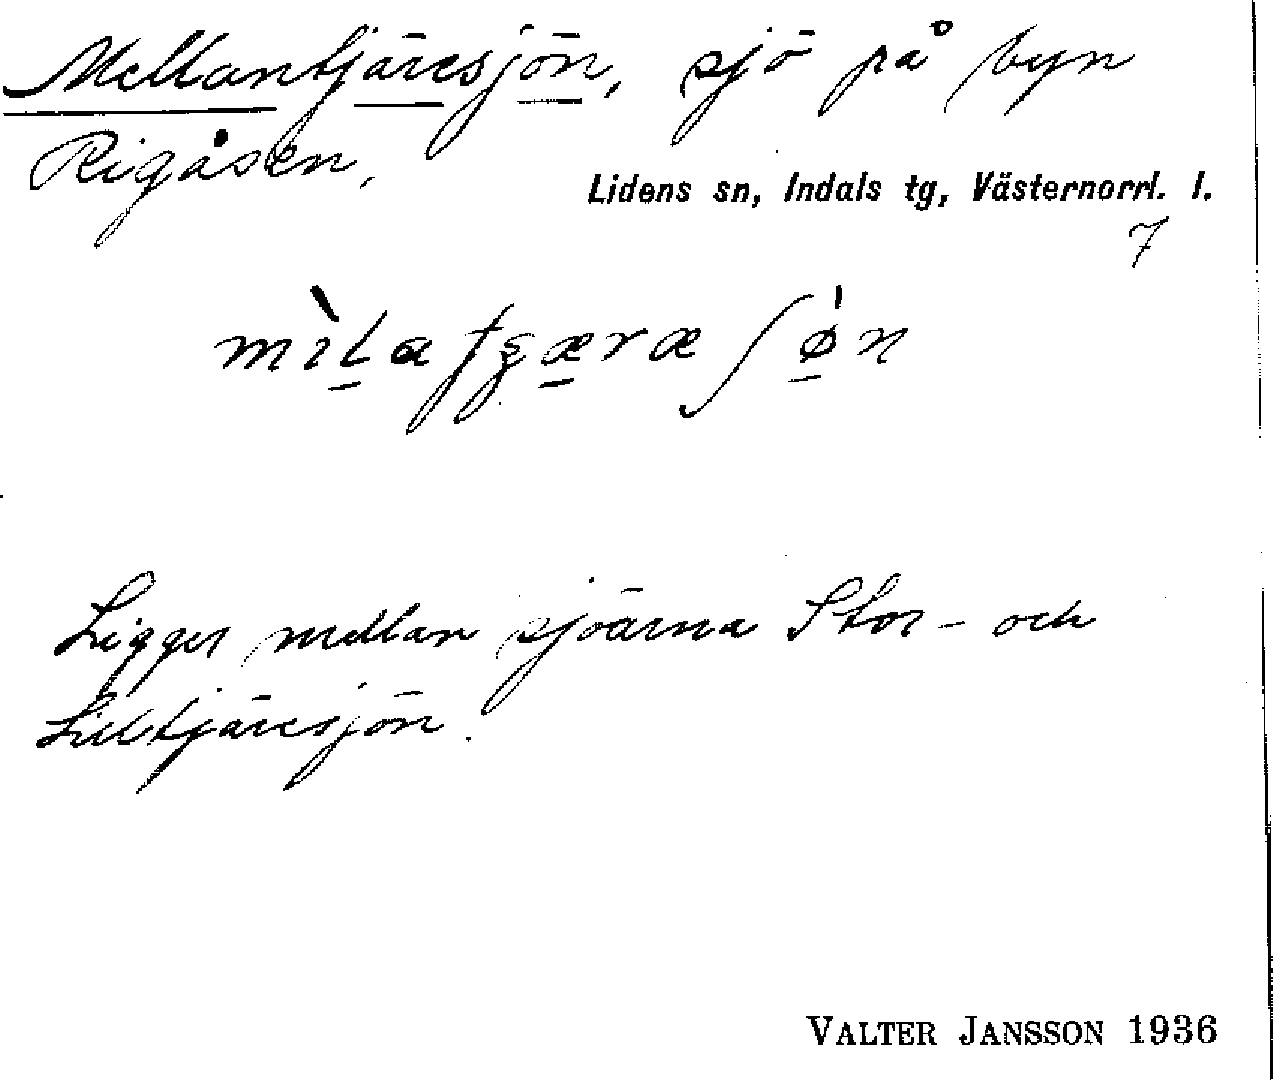 Mellantjäresjön, sjö på byn
Rigåsen,
Lidens sn, Indals tg, Västernorrl. l.
7
Ligger mellan sjöarna Stor- och
Lilltjäresjön.
VALTER JANSSON 1936